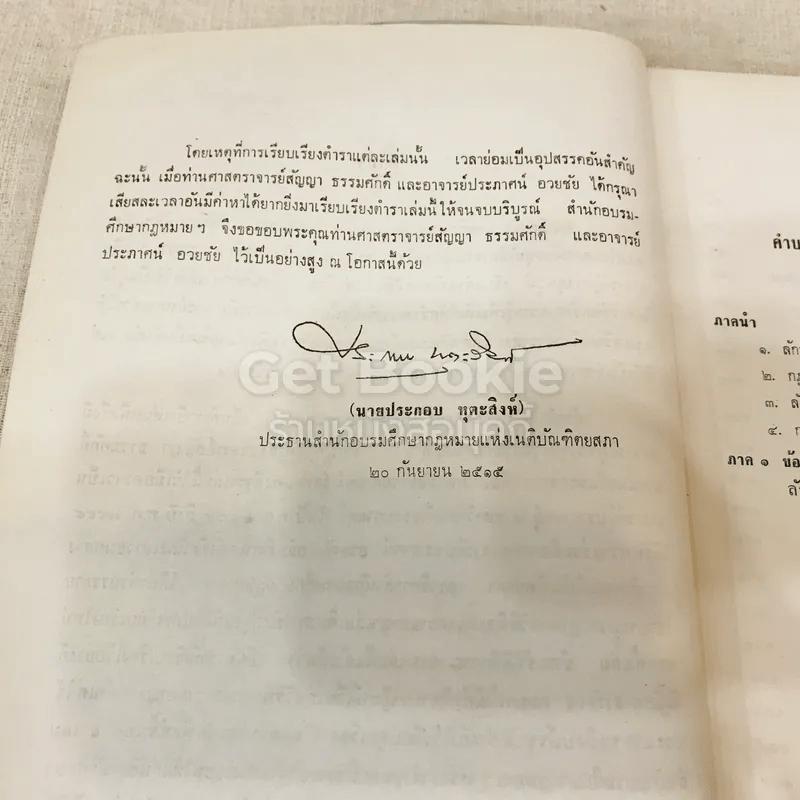 โดยเหตุที่การเรียบเรียงตำราแต่ละเล่มนั้น เวลาย่อมเป็นอุปสรรคอันสำคัญ
ฉะนั้น เมื่อท่านศาสตราจารย์สัญญา ธรรมศักดิ์ และอาจารย์ประภาศน์ อวยชัย ได้กรุณา
เสียสละเวลาอันมีค่าหาได้ยากยิ่งมาเรียบเรียงตำราเล่มนี้ให้จนจบบริบูรณ์ สำนักอบรม-
ศึกษากฎหมาย ฯ จึงขอขอบพระคุณท่านศาสตราจารย์สัญญา ธรรมศักดิ์ และอาจารย์
ประภาศน์ อวยชัย ไว้เป็นอย่างสูง ณ โอกาสนี้ด้วย
Get Bookie
(นายประกอบ หุตะสิงห์)
ร้านหนังสือมุคกี้
ประธานสำนักอบรมศึกษากฎหมายแห่งเนติบัณฑิตยสภา
๒๐ กันยายน ๒๕๑๕
คำบ
ภาคนำ
๑. ลัก
๒. กฎ
๓. ลั
๔. ก
ภาค ๑ ข้อ
ลั